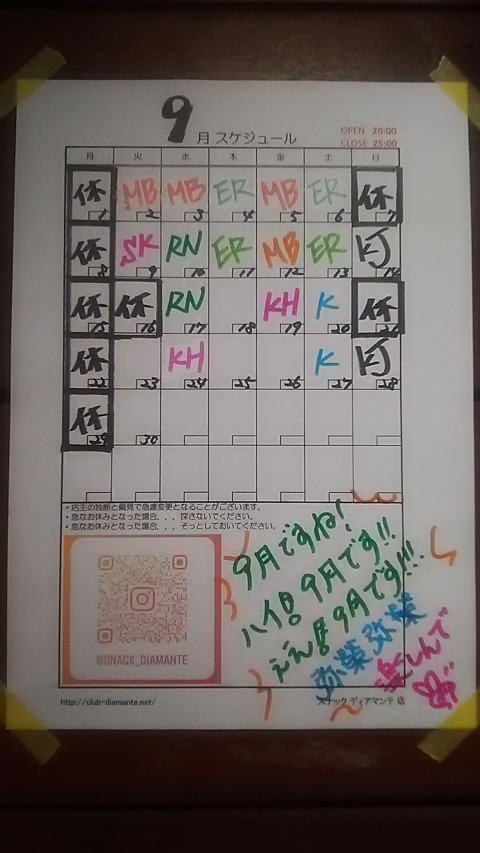 9月 スケジュール
OPEN 20:00
CLOSE 25:00
月 火 水 木 金 土 日
休 MB MB ER MB ER 休
1 2 3 4 5 6 7
休 SK RN ER MB ER KJ
8 9 10 11 12 13 14
休 休 RN KH K 休
15 16 17 18 19 20 21
休 KH K KJ
22 23 24 25 26 27 28
休
29 30
・店主の独断と偏見で急遽変更となることがございます。
・急なお休みとなった場合．．．探さないでください。
・急なお休みとなった場合．．．そっとしておいてください。
9月ですね!
ハイ!! 9月です!!
ええ!! 9月です!!!
弥榮弥榮
楽しんで
@SNACK_DIAMANTE
http://club-diamante.net/
スナック ディアマンテ 店